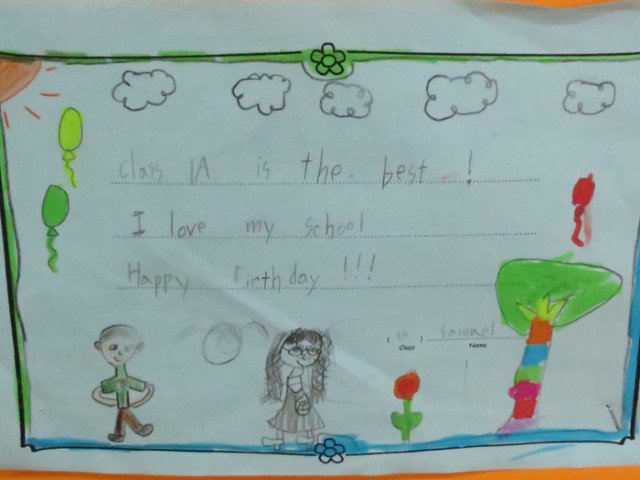 class 1A is the. best !
I love my school
Happy Birthday !!!
( 1A ) samuel
Class Name